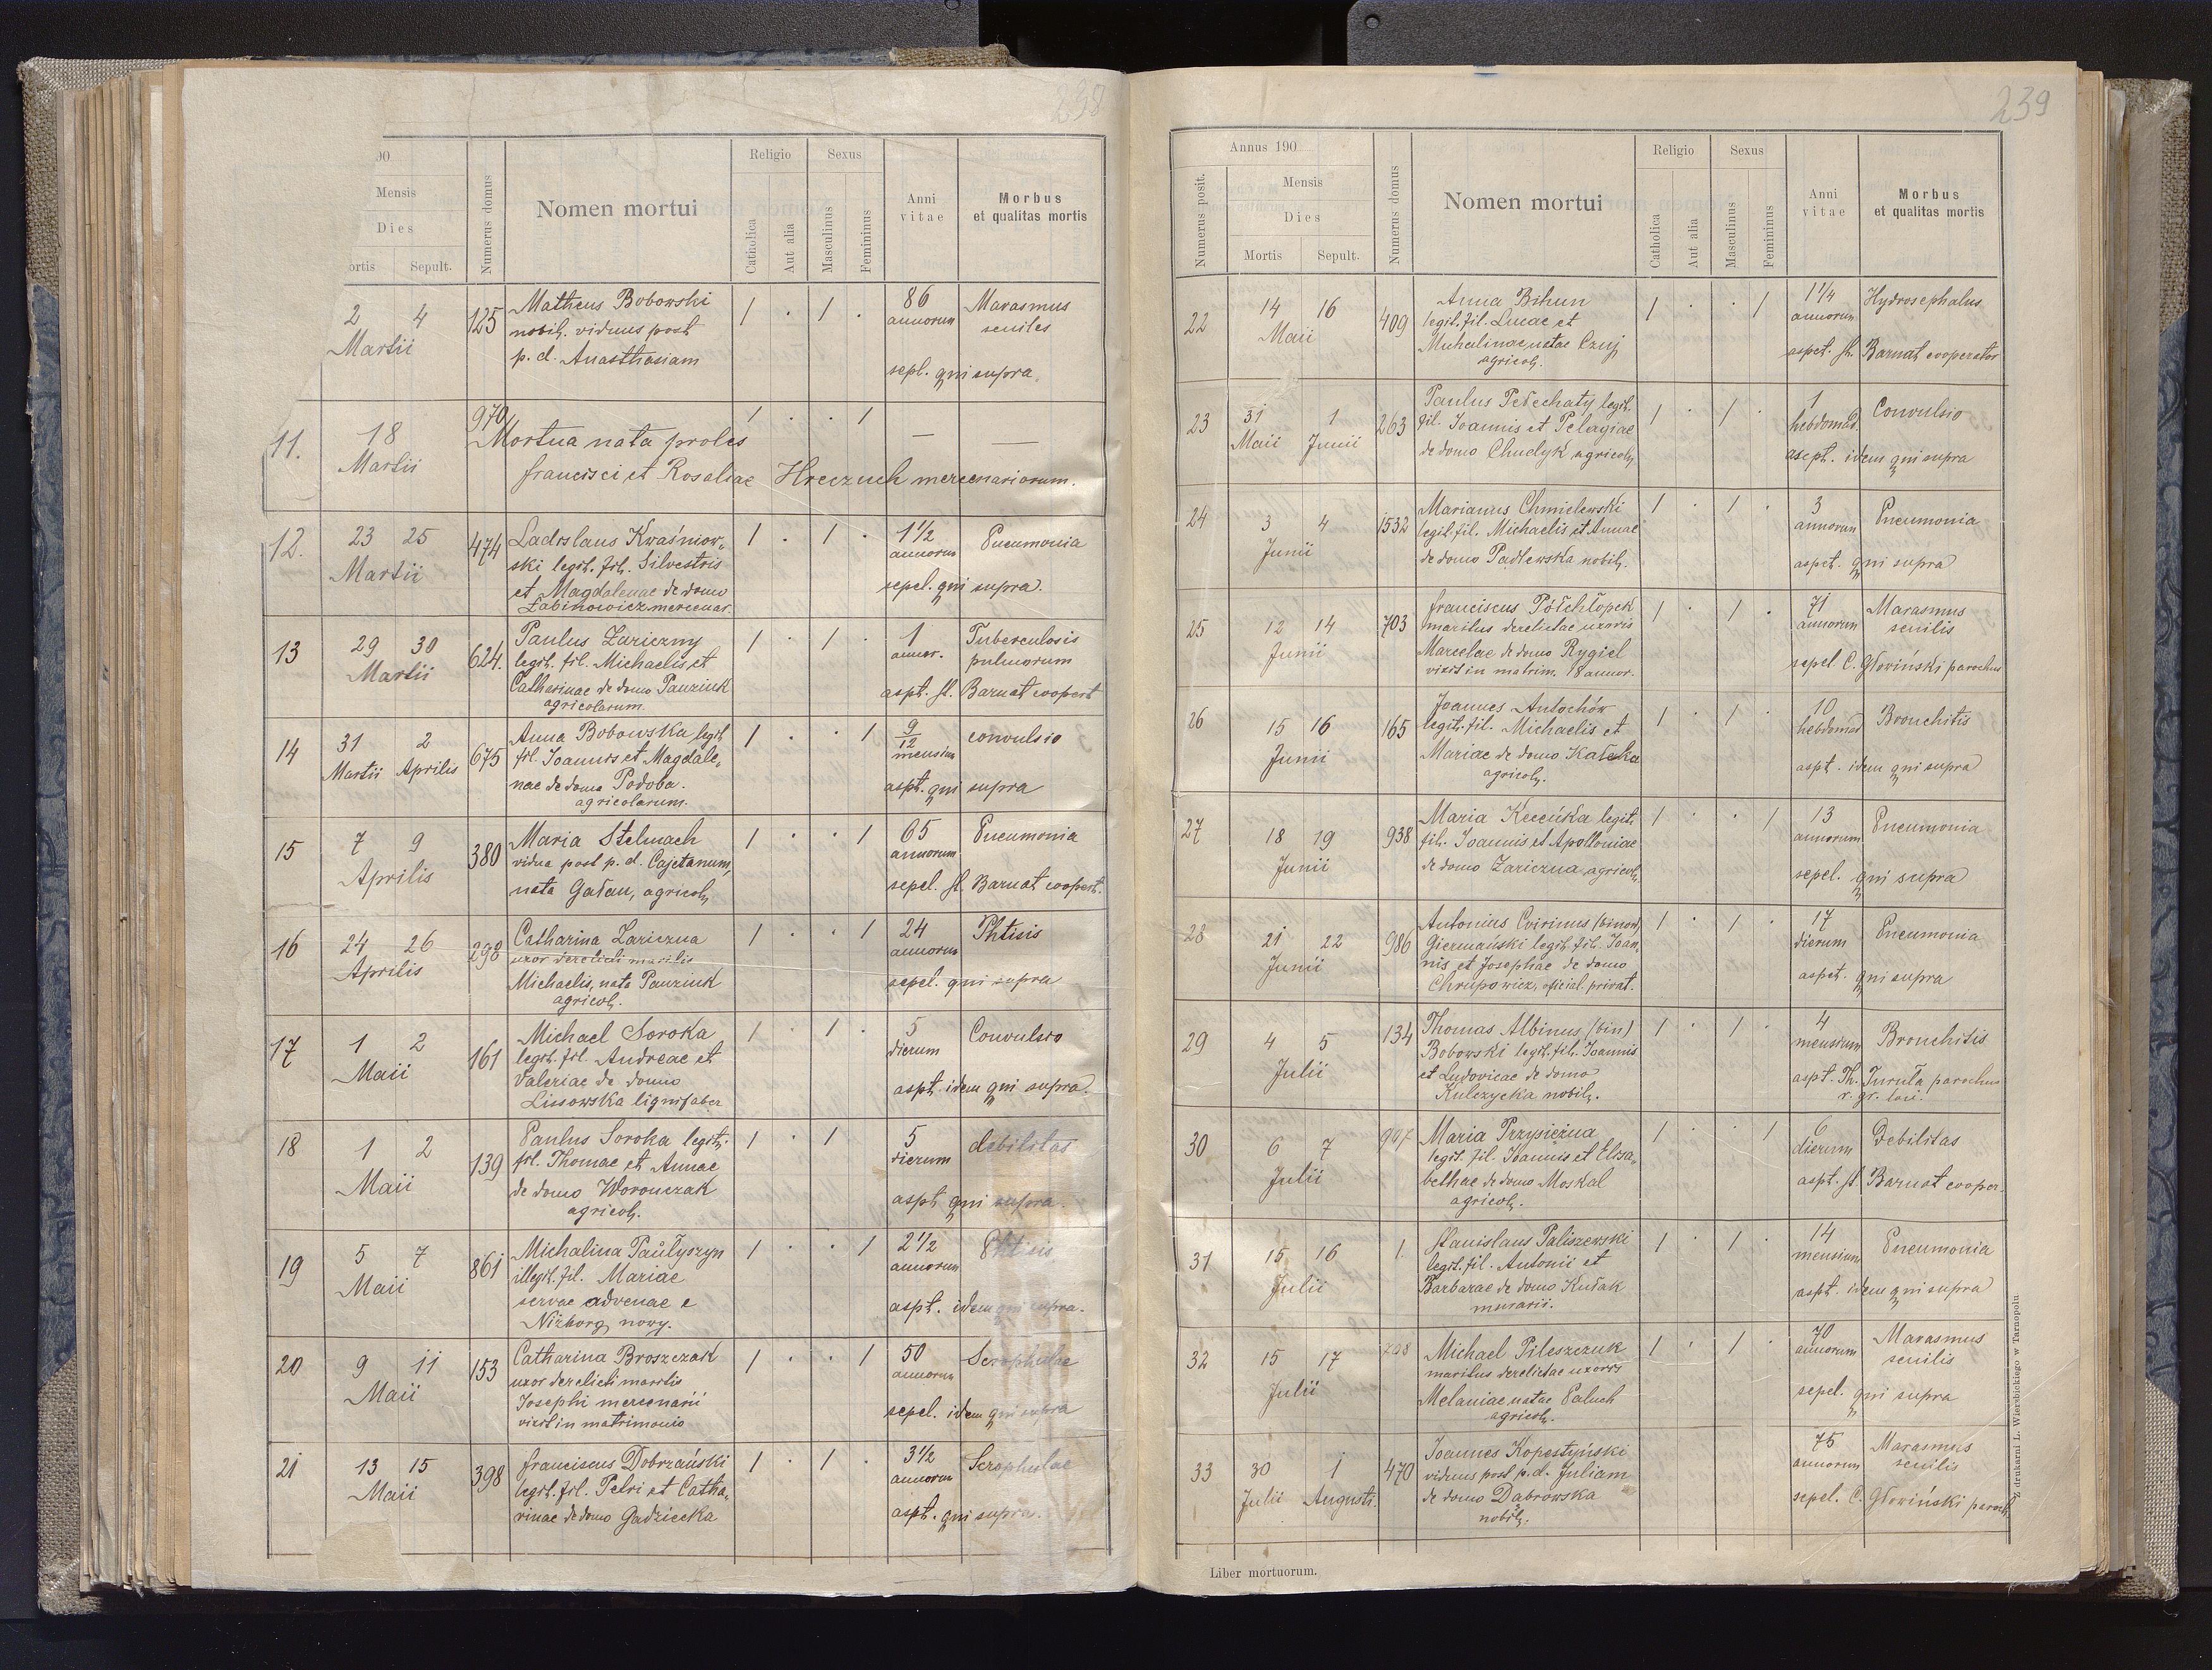 238
90
Mensis
Dies
ortis Sepult.
Numerus domus
Nomen mortui
Religio
Catholica
Aut alia
Sexus
Masculinus
Femininus
Anni
vitae
Morbus
et qualitas mortis
2 4 125 Matheus Bobowski 1 . 1 . 86 Marasmus
Martii nobil. viduus post annorum seniles
p. d. Anasthasiam sepl. qui supra.
11. 18 970 Mortua nata proles 1 . . 1 — —
Martii francisci et Rosaliae Hreczuch mercenariorum.
12. 23 25 474 Ladislaus Kwaśniow- 1 . 1 . 1 1/2 Pneumonia
Martii ski legit. fil. Silvestris annorum
et Magdalenae de domo sepel. qui supra.
Łabinowicz mercenar.
13 29 30 624. Paulus Zariczny 1 . 1 . 1 Tuberculosis
Martii legit. fil. Michaelis et annor. pulmorum
Catharinae de domo Pauziuk aspt. fl. Barnat coopert
agricolarum.
14 31 2 675 Anna Bobowska legit. 1 . . 1 9/12 convulsio
Martii Aprilis fil. Joannis et Magdale- mensium
nae de domo Podoba. aspt. qui supra
agricolarum.
15 7 9 380 Maria Stelmach 1 . . 1 65 Pneumonia
Aprilis vidua post p. d. Cajetanum, annorum
nata Gałan, agricol. sepel. fl. Barnat coopert.
16 24 26 298 Catharina Zariczna 1 . . 1 24 Phtisis
Aprilis uxor derelicti maritis annorum
Michaelis, nata Pauziuk sepel. qui supra
agricol.
17 1 2 161 Michael Soroka 1 . 1 . 5 Convulsio
Maii legit. fil. Andreae et dierum
Valeriae de domo aspt. idem qui supra.
Lissowska lignifaber
18 1 2 139 Paulus Soroka legit. 1 . 1 5 debilitas
Maii fil. Thomae et Annae dierum
de domo Woronczak aspt. qui supra.
agricol.
19 5 7 861 Michalina Paułyszyn 1 . . 1 2 1/2 Phtisis
Maii illegit. fil. Mariae annorum
servae advenae e aspt. idem qui supra.
Niżborg nowy.
20 9 11 153 Catharina Broszczak 1 . . 1 50 Scrophulae
Maii uxor derelicti maritis annorum
Josephi mercenarii sepel. idem qui supra
vixit in matrimonio
21 13 15 398 franciscus Dobrzański 1 . 1 . 3 1/2 Scrophulae
Maii legit. fil. Petri et Catha- annorum
rinae de domo Gadziecka aspt. qui supra.
239
Annus 190
Numerus posit.
Mensis
Dies
Mortis Sepult.
Numerus domus
Nomen mortui
Religio
Catholica
Aut alia
Sexus
Masculinus
Femininus
Anni
vitae
Morbus
et qualitas mortis
22 14 16 409 Anna Bihun 1 . . 1 1 1/4 Hydrosephalus
Maii legit. fil. Lucae et annorum
Michalinae natae Czuj aspct. fl. Barnat cooperator
agricol.
23 31 1 263 Paulus Pełechaty legit. 1 . 1 . 1 Convulsio
Maii Junii fil. Joannis et Pelagiae hebdomad.
de domo Chudyk agricol. asept. idem qui supra
24 3 4 1532 Marianus Chmielewski 1 . 1 . 3 Pneumonia
Junii legit. fil. Michaelis et Annae annorum
de domo Padlewska nobil. aspct. qui supra
25 12 14 703 franciscus Półchłopek 1 . 1 . 71 Marasmus
Junii maritus derelictae uxoris annorum senilis
Marcelae de domo Rygiel sepel C. Głowiński parochus
vixit in matrim. 18 annor.
26 15 16 165 Joannes Antochów 1 . 1 . 10 Bronchitis
Junii legit. fil. Michaelis et hebdomad
Mariae de domo Kałuka aspt. idem qui supra
agricol.
27 18 19 938 Maria Kecuńka legit. 1 . . 1 13 Pneumonia
Junii fil. Joannis et Apolloniae annorum
de domo Zariczna agricol. sepel. qui supra
28 21 22 986 Antonius Cvirinus (binom) 1 . 1 . 17 Pneumonia
Junii Giermański legit. fil. Joan- dierum
nis et Josephae de domo aspct. qui supra
Chrupowicz, oficial. privat.
29 4 5 134 Thomas Albinus (bin) 1 . 1 . 4 Bronchitis
Julii Bobowski legit. fil. Joannis mensium
et Ludovicae de domo aspt. Th. Turuła parochus
Kulczycka nobil. r. gr. loci.
30 6 7 907 Maria Przysiężna 1 . . 1 6 Debilitas
Julii legit. fil. Joannis et Elisa- dierum
bethae de domo Moskal aspt. fl. Barnat cooper.
agricol.
31 15 16 1. Stanislaus Paliszewski 1 . 1 . 14 Pneumonia
Julii legit. fil. Antonii et mensium
Barbarae de domo Kułak aspt. idem qui supra
murarii.
32 15 17 708 Michael Pileszczuk 1 . 1 . 70 Marasmus
Julii maritus derelictae uxoris annorum senilis
Melaniae natae Paluch sepel. qui supra
agricol.
33 30 1 470 Joannes Kopestyński 75 Marasmus
Julii Augusti. viduus post p. d. Juliam annorum senilis
de domo Dąbrowska sepel. C. Głowiński paroch.
nobil.
Liber mortuorum.
Z drukarni L. Wierzbickiego w Tarnopolu